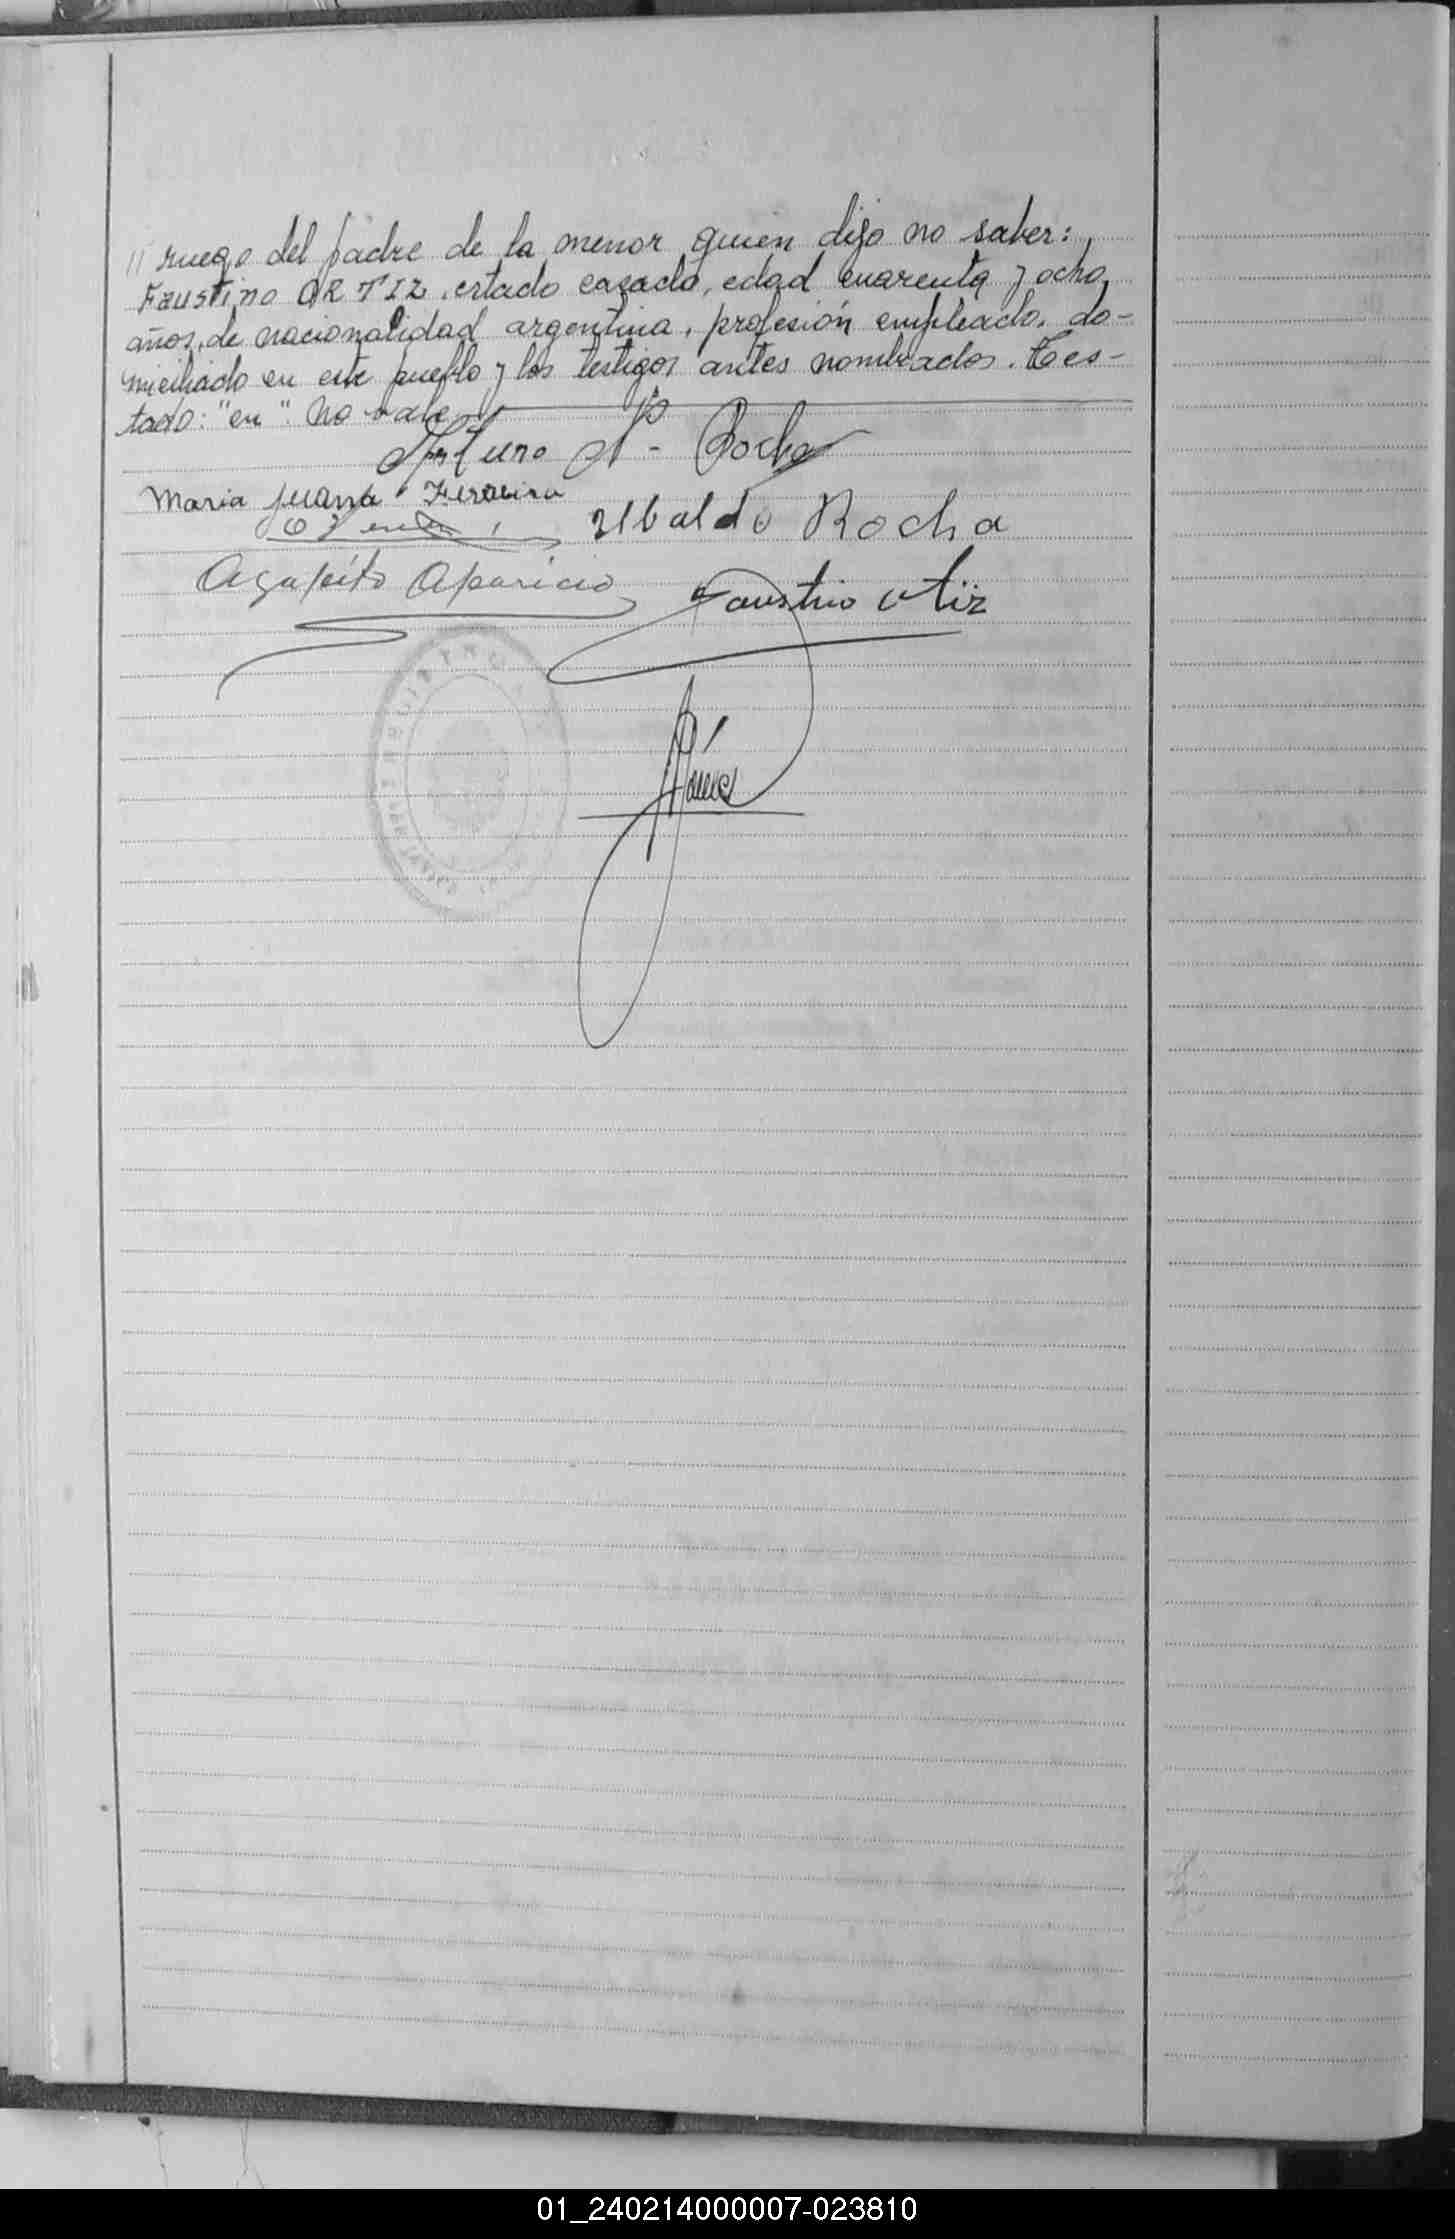 // ruego del padre de la menor quien dijo no saber:
Faustino ORTIZ, estado casado, edad cuarenta y ocho
años, de nacionalidad argentina, profesión empleado, do-
miciliado en este pueblo y los testigos antes nombrados. Tes-
tado: "en". No vale
Arturo N. Rocha
Maria Juana
Ubaldo Rocha
Agapito Aparicio
Faustino Ortiz
01_240214000007-023810